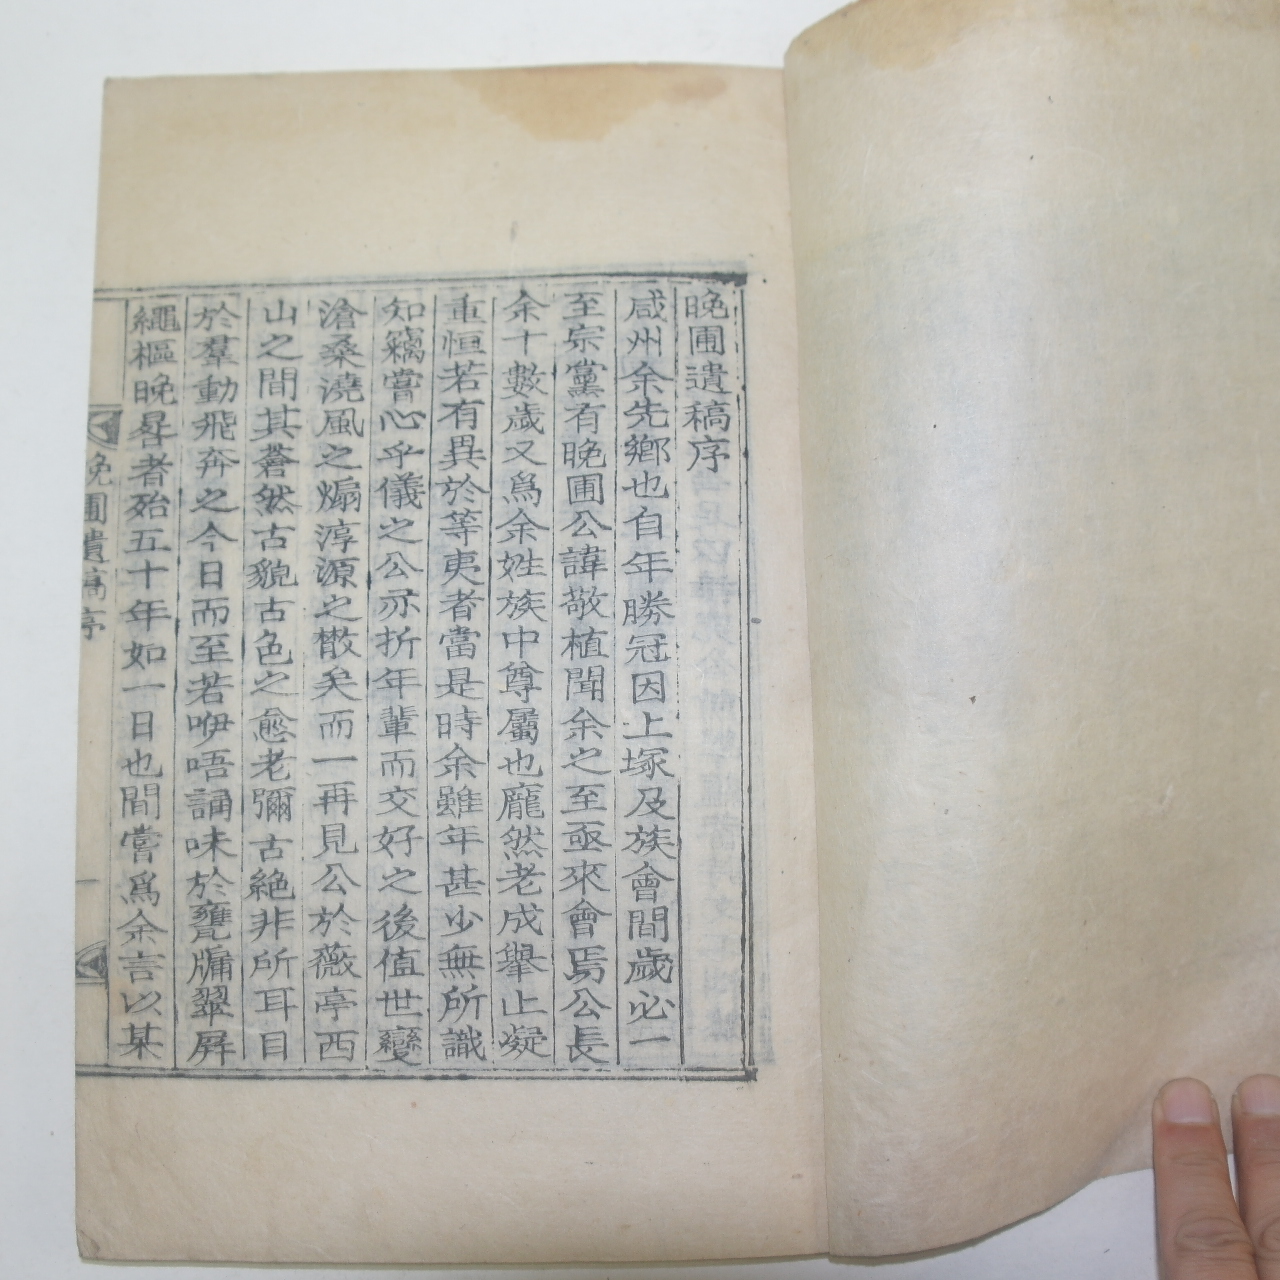 晚圃遺稿序
咸州余先鄕也自年勝冠因上塚及族會間歲必一
至宗黨有晚圃公諱敬植聞余之至亟來會焉公長
余十數歲又爲余姓族中尊屬也龐然老成擧止凝
重恒若有異於等夷者當是時余雖年甚少無所識
知竊嘗心乎儀之公亦折年輩而交好之後値世變
滄桑澆風之煽淳源之散矣而一再見公於薇亭西
山之間其蒼然古貌古色之愈老彌古絶非所耳目
於羣動飛奔之今日而至若咿唔誦味於甕牖翠屛
繩樞晚晷者殆五十年如一日也間嘗爲余言以某
晚圃遺稿序
一